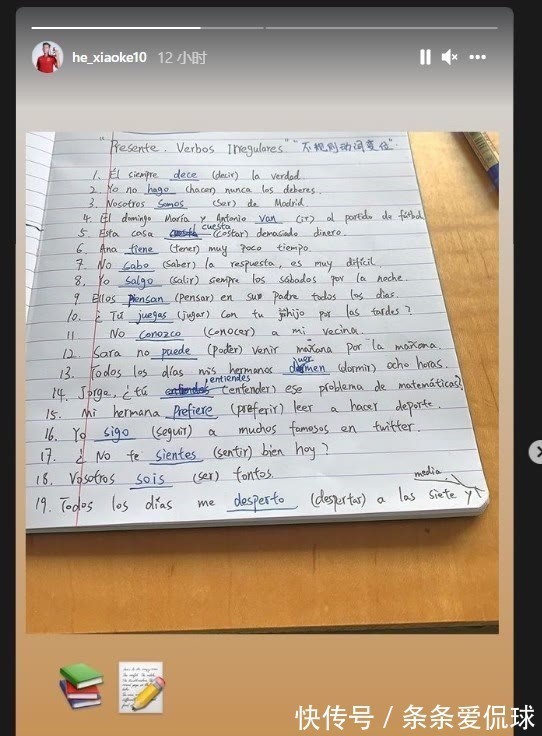 he_xiaoke10 12 小时
"Presente. Verbos Irregulares" "不规则动词变位".
1. Él siempre dece (decir) la verdad.
2. Yo no hago (hacer) nunca los deberes.
3. Nosotros Somos (ser) de Madrid.
4. El domingo María y Antonio van (ir) al partido de fútbol
cuesta
5. Esta casa (costar) demasiado dinero.
6. Ana tiene (tener) muy poco tiempo.
7. No sabo (saber) la respuesta, es muy difícil.
8. Yo salgo (salir) siempre los sábados por la noche
9. Ellos piensan (pensar) en su padre todos los días.
10. ¿Tú juegas (jugar) con tu hijo por las tardes?
11 No conozco (conocar) a mi vecina.
12. Sara no puede (poder) venir mañana por la mañana.
13. Todos los días mis hermanos duermen (dormir) ocho horas.
entiendes
14. Jorge, ¿tú (entender) ese problema de matemáticas?
15. Mi hermana Prefiere (preferir) leer a hacer deporte.
16. Yo sigo (seguir) a muchos famosos en twitter.
17. ¿ No te sientes (sentir) bien hoy?
18. Vosotros sois (ser) tontos.
media
19. Todos los días me desperto (despertar) a las siete y
快传号 / 条条爱侃球